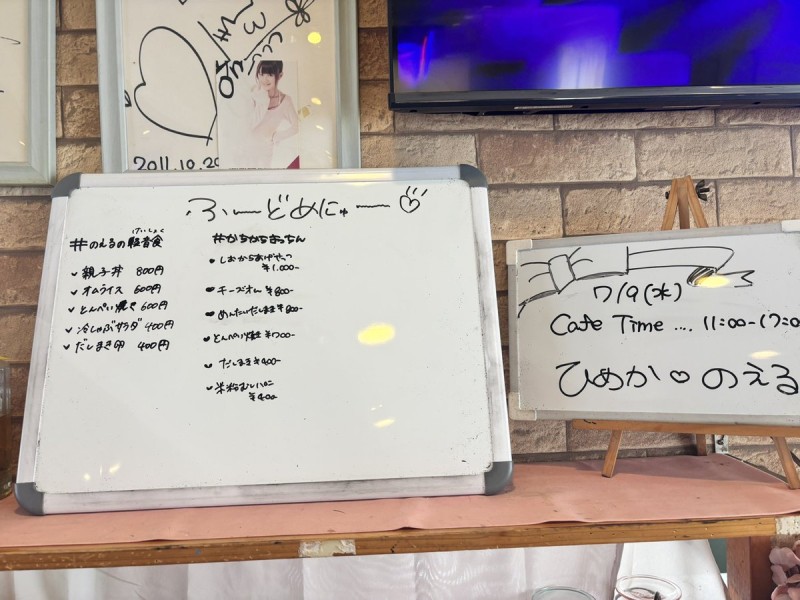 2011.10.29
ふーどめにゅー♡
#のえるの軽音食
けいしょく
✓親子丼 800円
✓オムライス 600円
✓とんぺい焼き 600円
✓冷しゃぶサラダ 400円
✓だしまき卵 400円
#からからきっちん
・しおからあげやっこ
¥1.000-
・チーズオム ¥800-
・めんたいだしまき ¥800-
・とんぺい焼 ¥700-
・だしまき ¥400-
・米粉むしパン
¥400
7/9(水)
Cafe Time .... 11:00-17:00
ひめか♡のえる